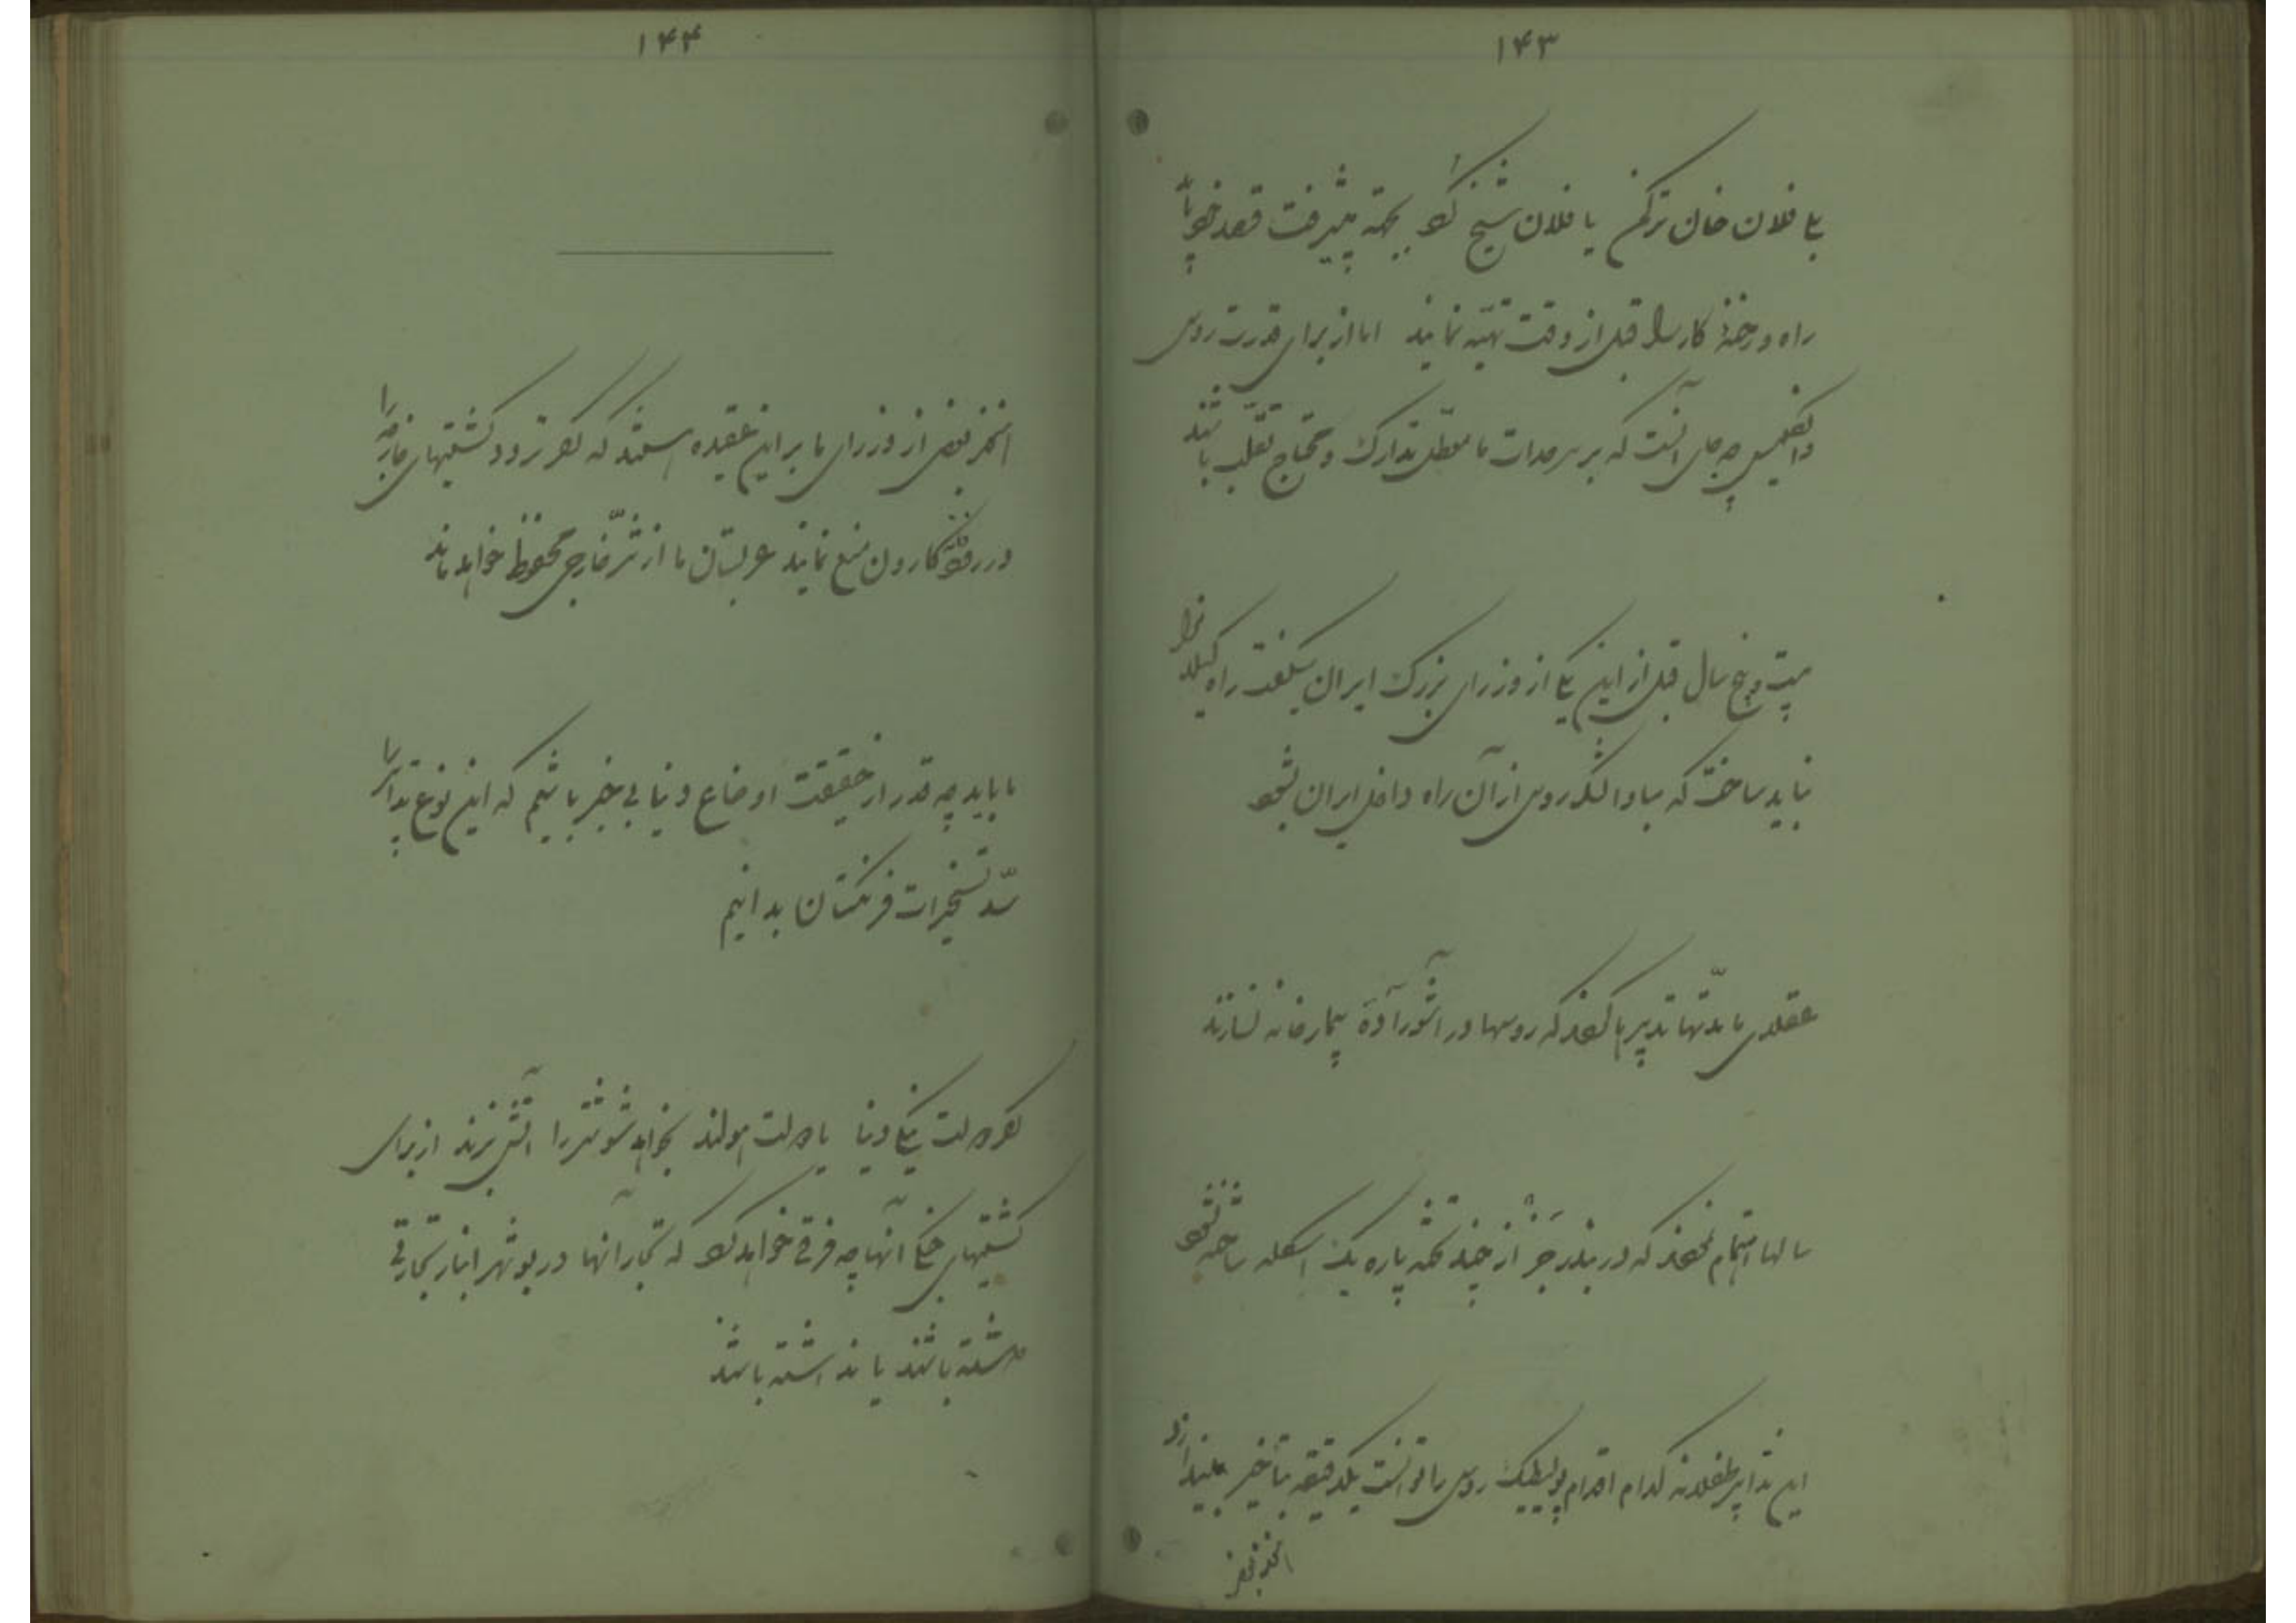 ۱۴۳
یا فلان خان ترکمن یا فلان شیخ کرد بجهة پیشرفت قصد خود باید
راه و رخنهٔ کار را قبل از وقت تهیه نمایند اما از برای قدرت روس
و انگلیس چه جای آنست که بر سرحدات ما معطل تدارک و محتاج تقلب باشند
بیست و پنج سال قبل از این یکی از وزرای بزرگ ایران میگفت راه گیلان را
نباید ساخت که مبادا لشکر روس از آن راه داخل ایران بشود
عقلای ما مدتها تدبیر ها کردند که روسها در آشوراده بیمارخانه نسازند
سالها اهتمام نمودند که در بندر جز از چند تخته پاره یک اسکله ساخته نشود
این تدابیر طفلانه کدام اقدام پولیتیک روس را توانست یکدقیقه بتأخیر بیندازد
الان بعضی
۱۴۴
الان بعضی از وزرای ما بر این عقیده هستند که اگر تردد کشتیهای خارجه را
در رود کارون منع نمایند عربستان ما از شر خارجی محفوظ خواهد ماند
ما باید چه قدر از حقیقت اوضاع دنیا بی خبر باشیم که این نوع تدابیر را
سد تسخیرات فرنگستان بدانیم
اگر دولت ینگی دنیا یا دولت هولند بخواهد شوشتر را آتش بزند از برای
کشتیهای جنگی آنها چه فرقی خواهد کرد که تجار آنها در بوشهر انبار تجارتی
داشته باشند یا نداشته باشند